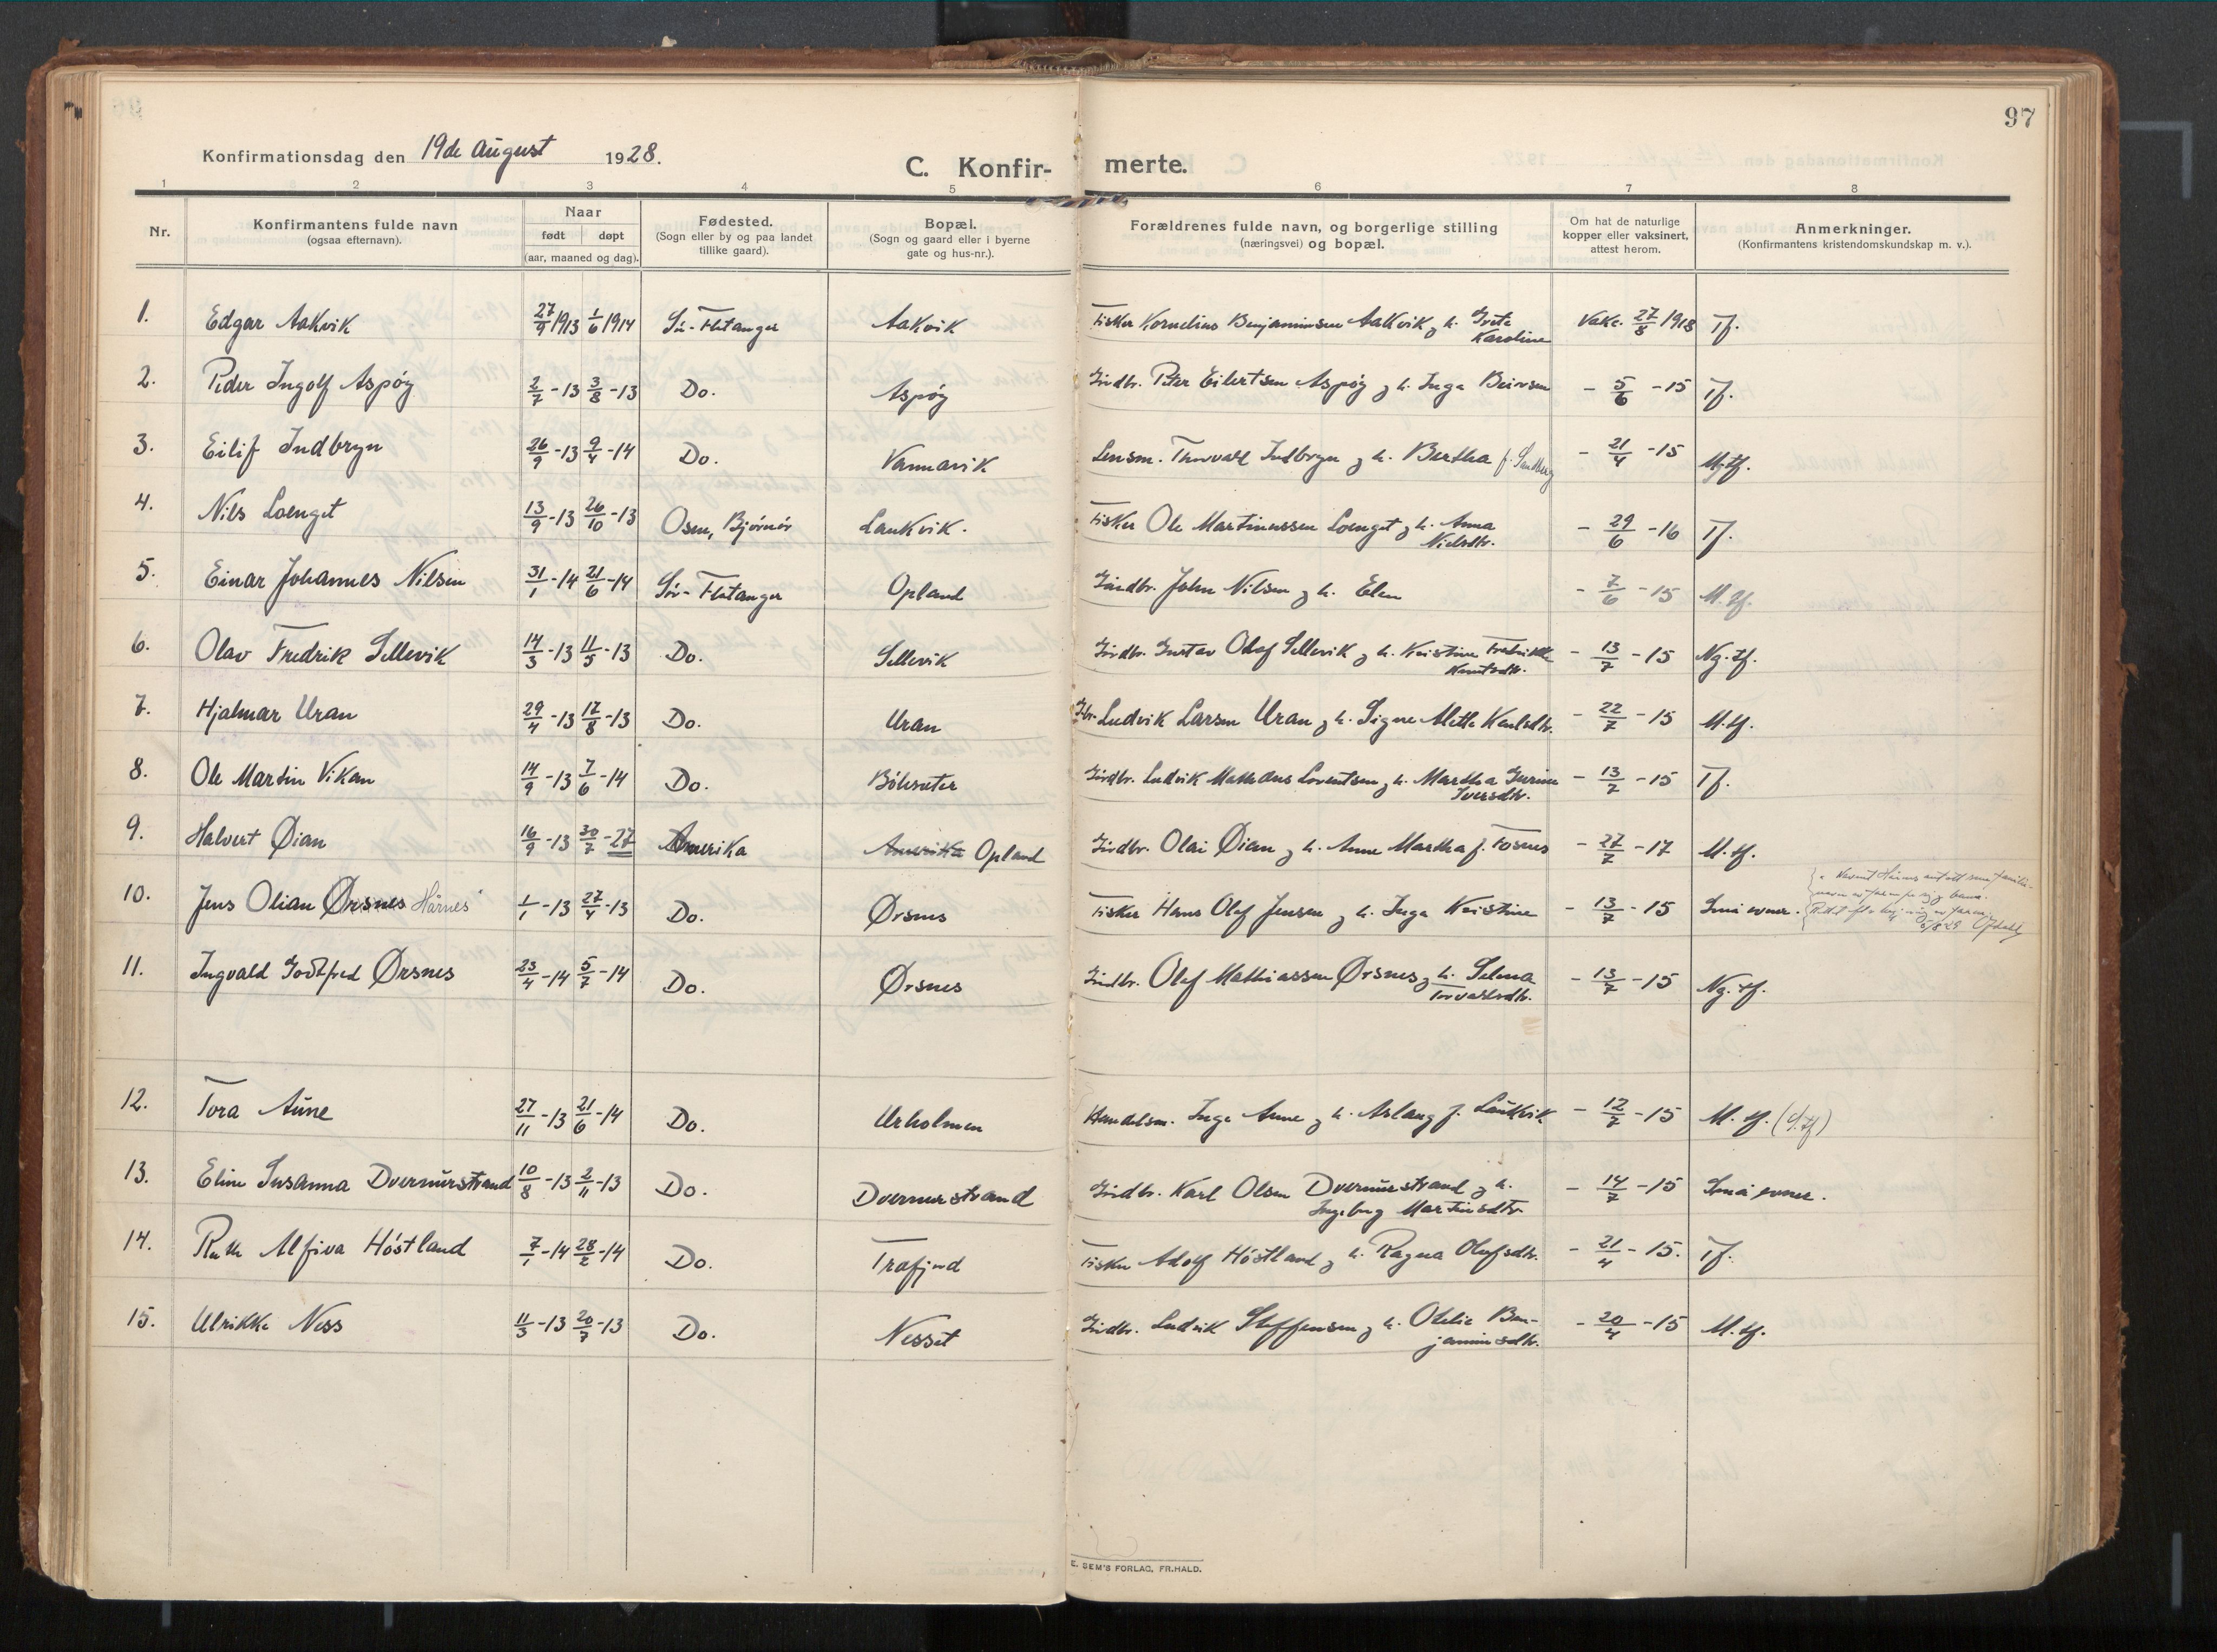 97
Konfirmationsdag den 19de August 1928.
C. Konfir- merte.
1 2 3 4 5 6 7 8
Nr. Konfirmantens fulde navn (ogsaa efternavn). Naar født døpt (aar, maaned og dag). Fødested. (Sogn eller by og paa landet tillike gaard). Bopæl. (Sogn og gaard eller i byerne gate og hus-nr.). Forældrenes fulde navn, og borgerlige stilling (næringsvei) og bopæl. Om hat de naturlige kopper eller vaksinert, attest herom. Anmerkninger. (Konfirmantens kristendomskundskap m. v.).
1. Edgar Aakvik 27/9 1913 1/6 1914 Sø-Flatanger Aakvik Fisker Kornelius Benjaminsen Aakvik og h. Grete Karoline Vakc. 27/8 1918 Tf.
2. Peder Ingolf Aspøy 2/7-13 3/8-13 Do. Aspøy Grdbr. Peter Eilertsen Aspøy og h. Inga - 5/6-15 Tf.
3. Eilif Indbryn 26/9-13 9/4-14 Do. Vannavik Lensm. Thorvald Indbryn og h. Bertha f. Sandberg - 21/4-15 Mgtf.
4. Nils Loenget 13/9-13 26/10-13 Osen, Bjørnør Laukvik. Fisker Ole Martinussen Loenget og h. Anna Nielsdtr. - 29/6-16 Tf.
5. Einar Johannes Nilsen 31/1-14 21/6-14 Sør-Flatanger Opland Grdbr. John Nilsen og h. Elen - 7/6-15 M.tf.
6. Olav Fredrik Sellevik 14/3-13 11/5-13 Do. Sellevik Grdbr. Gustav Olaf Sellevik og h. Kristine Fredrikke Knutsdtr. - 13/7-15 Ng.tf.
7. Hjalmar Uran 29/4-13 17/8-13 Do. Uran Gbr. Ludvik Larsen Uran og h. Signe Alette Karlsdtr. - 22/7-15 M.tf.
8. Ole Martin Vikan 14/9-13 7/6-14 Do. Bölesæter Grdbr. Ludvik Mathæus Lorentsen og h. Martha Gurine Iversdtr. - 13/7-15 Tf.
9. Halvert Øian 16/9-13 30/7-27 Amerika Amerika Opland Grdbr. Olai Øian og h. Anne Martha f. Fosnes - 27/7-17 M.tf.
10. Jens Olian Ørsnes Hårnes 1/1-13 27/4-13 Do. Ørsnes Fisker Hans Olef Jensen og h. Inga Kristine - 13/7-15 Små evner.
11. Ingvald Godtfred Ørsnes 23/4-14 5/7-14 Do. Ørsnes Grdbr. Olef Mathiassen Ørsnes og h. Selma Torvaldsdtr. - 13/7-15 Ng.tf.
12. Tora Aune 27/11-13 21/6-14 Do. Urholmen Handelsm. Inge Aune og h. Aslaug f. Laukvik - 12/7-15 M.tf. (S.tf)
13. Eline Susanna Dvernurstrand 10/8-13 2/11-13 Do. Dvernurstrand Grdbr. Karl Olsen Dvernurstrand og h. Ingeborg Martinsdtr - 14/7-15 Små evner.
14. Ruth Alfiva Høstland 7/1-14 28/2-14 Do. Trøfjord Fisker Adolf Høstland og h. Ragna Olufsdtr. - 21/4-15. Tf.
15. Ulrikke Ness 11/3-13 20/7-13 Do. Nesset Grdbr. Ludvik Steffensen og h. Odelie Benjaminsdtr. - 20/4-15 M.tf.
E. SEM'S FORLAG, FR.HALD.